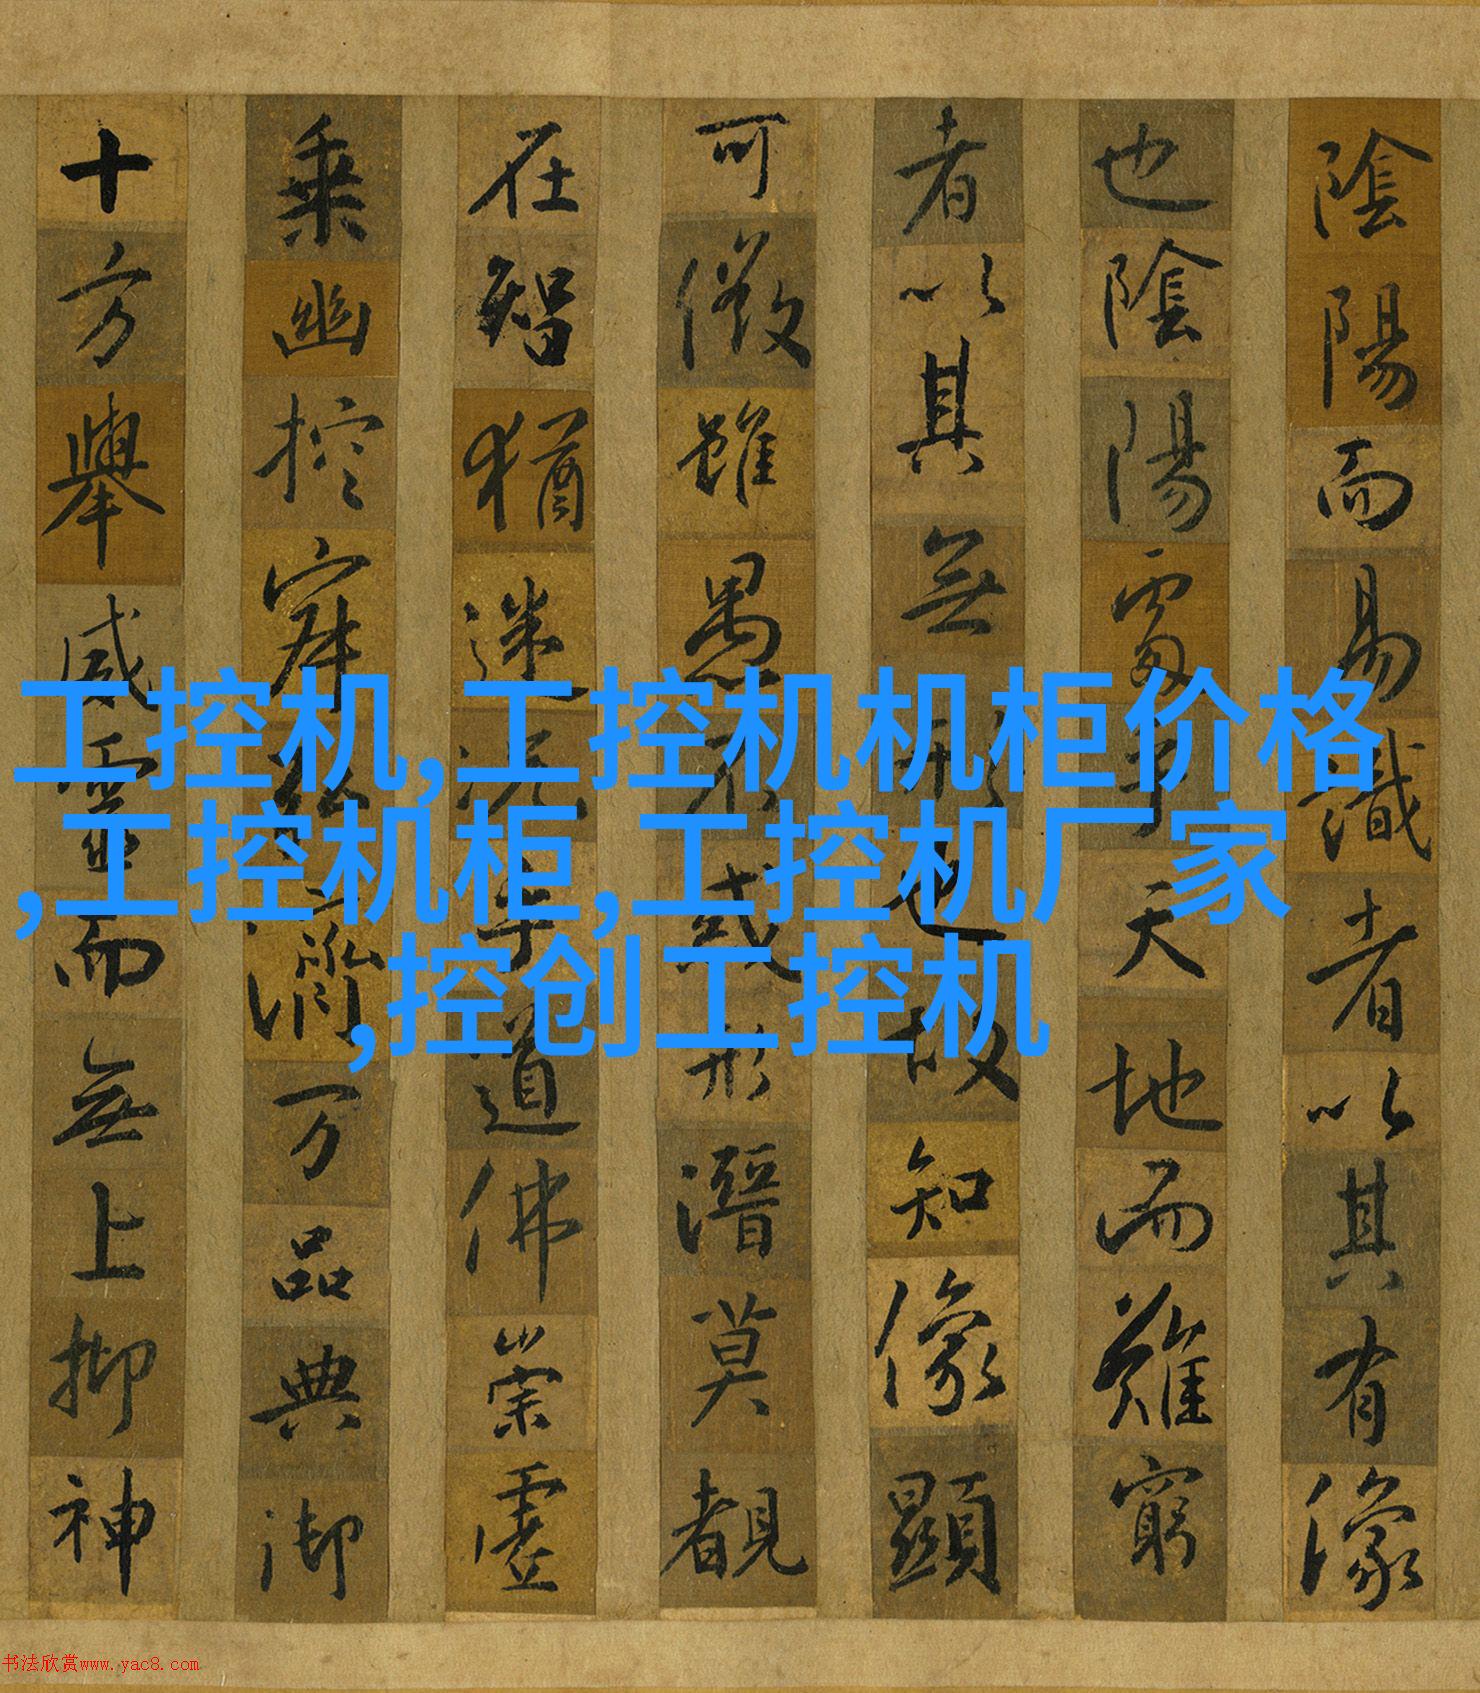 陰陽而易識者以其有像
也陰陽處乎天地而難窮
者以其無形也故知像顯
可徵雖愚不惑形潛莫覩
在智猶迷況乎道佛崇虛
乘幽控寂弘濟万品典御
十方舉威靈而無上抑神
工控机,工控机机柜价格
,工控机柜,工控机厂家
,控创工控机
书法欣赏www.yac8.com